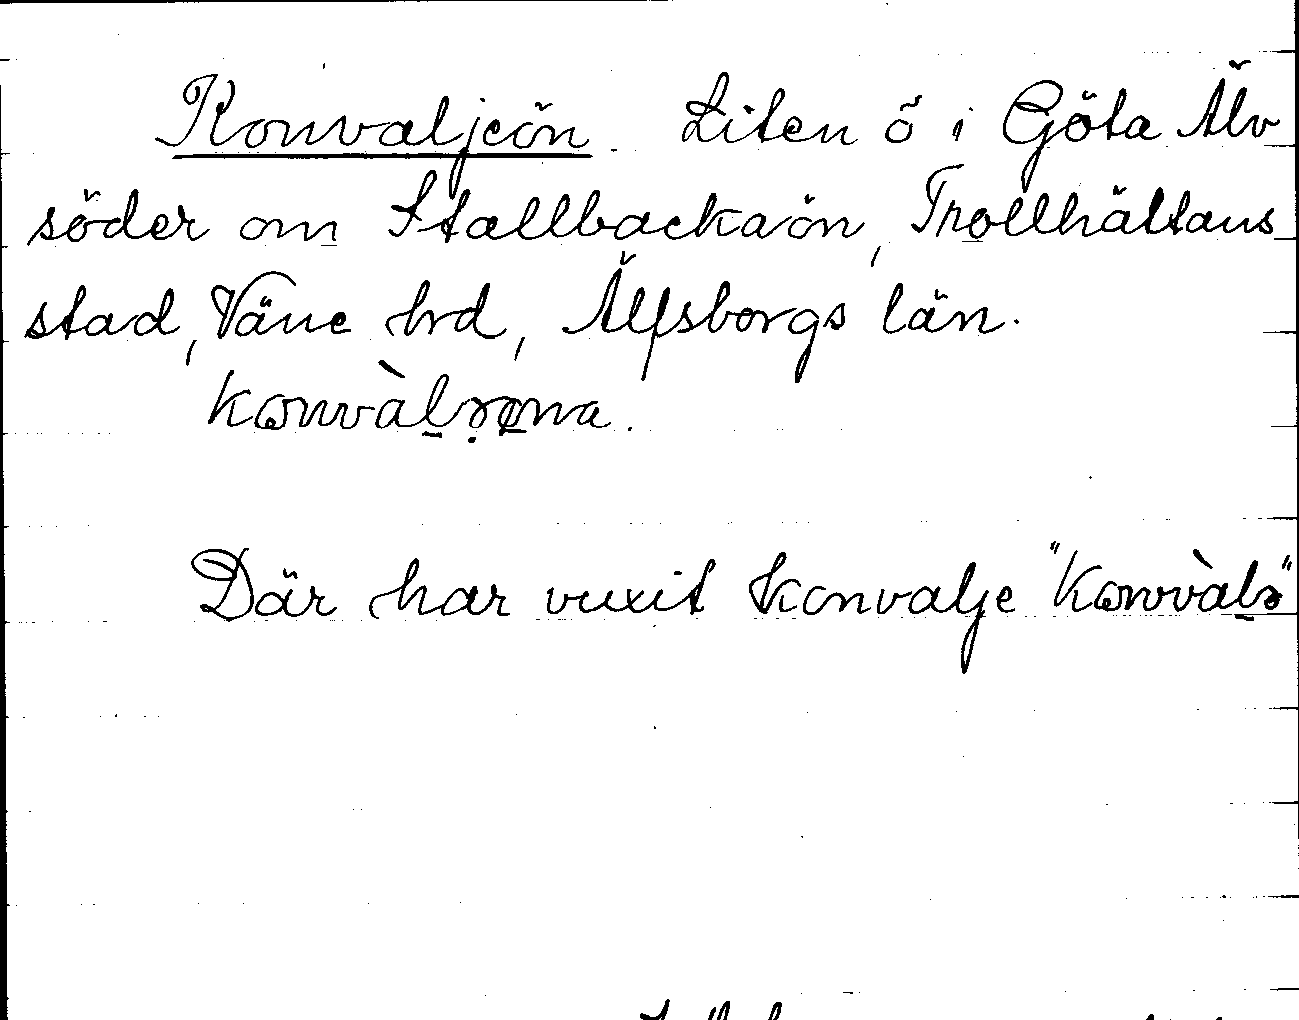 Konvaljeön. Liten ö i Göta Älv
söder om Stallbackaön, Trollhättans
stad, Väne hrd, Älfsborgs län.
Där har vuxit konvalje